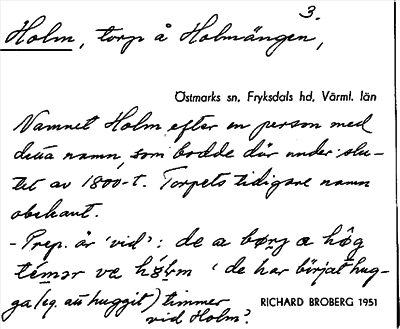 3.
Holm, torp å Holmängen,
Östmarks sn, Fryksdals hd, Värml. län
Namnet Holm efter en person med
detta namn, som bodde där under slu-
tet av 1800-t. Torpets tidigare namn
obekant.
- Prep. är 'vid': de a börj a hög
témər va hólm 'de har börjat hug-
ga (eg. att huggit) timmer
vid Holm'.
RICHARD BROBERG 1951